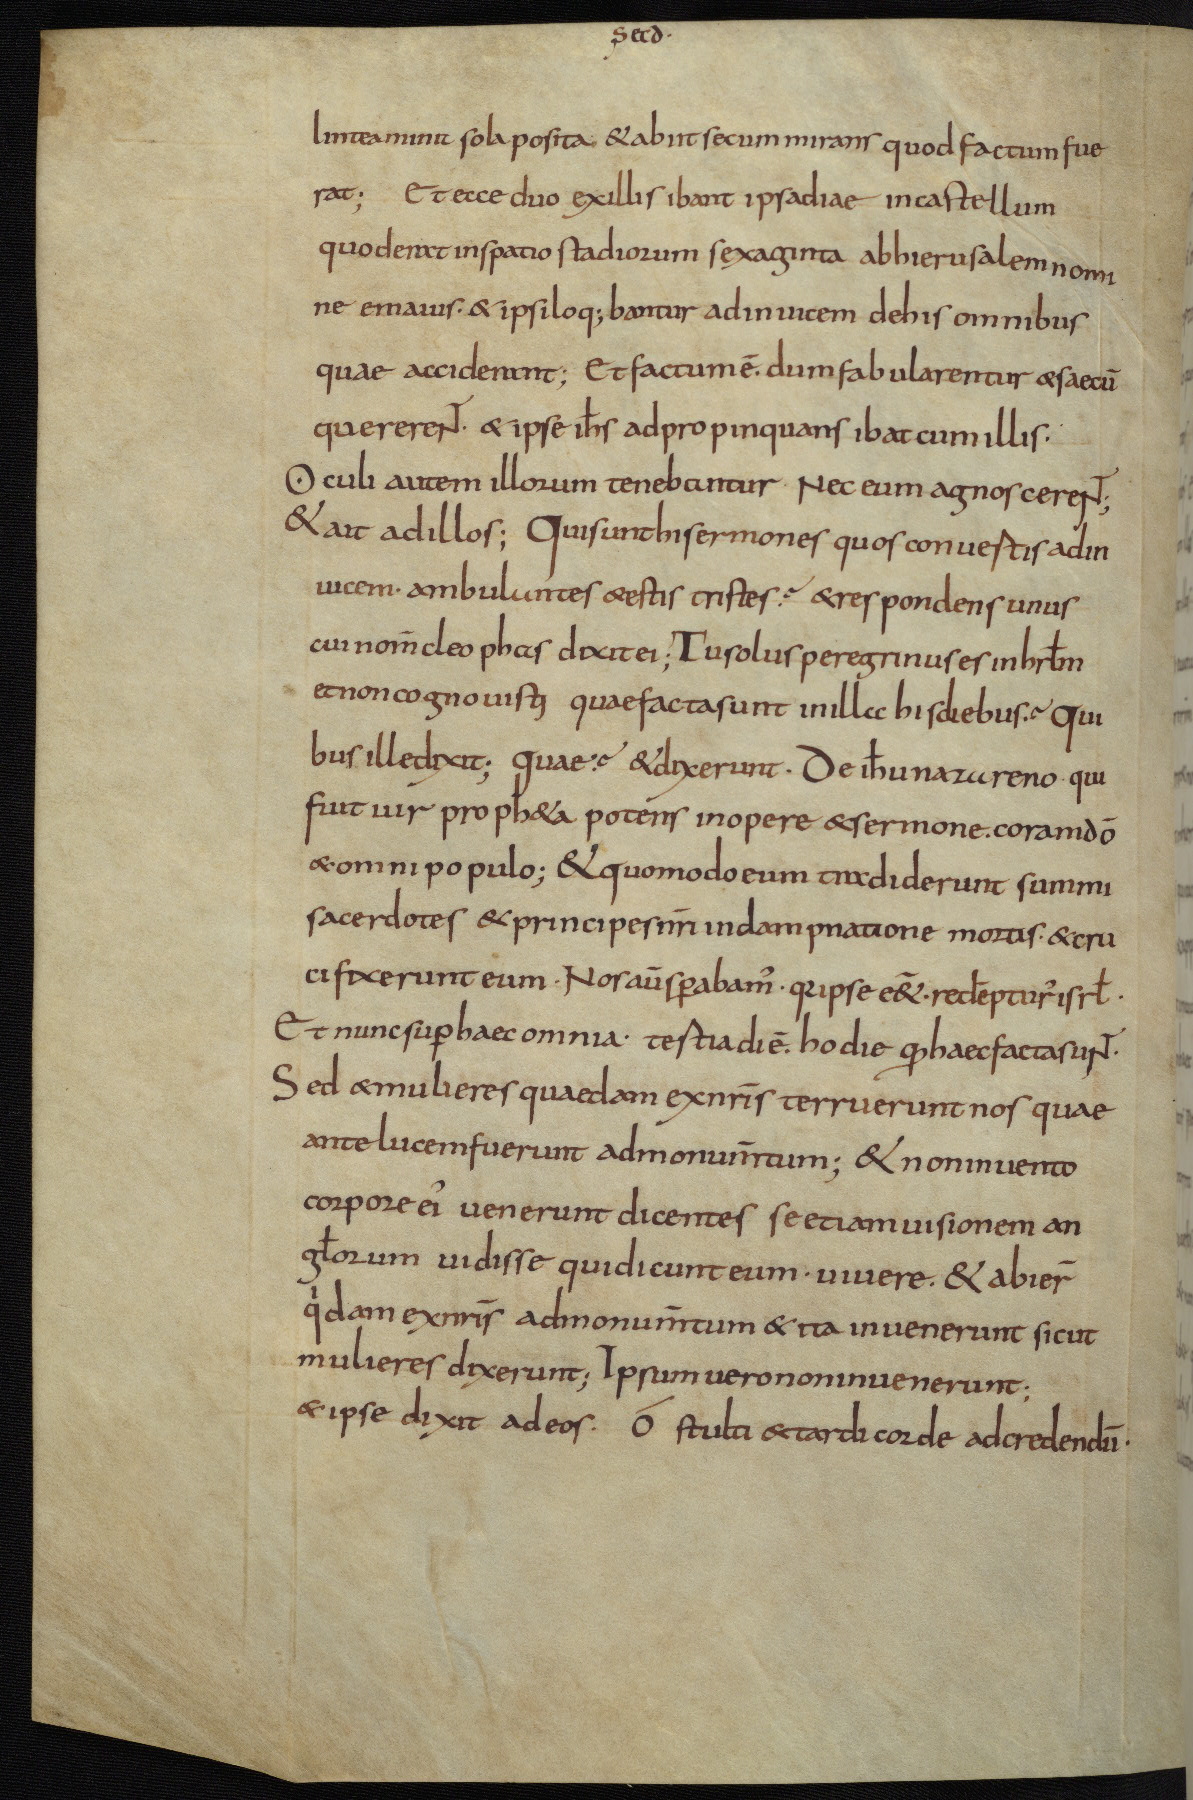 Secd·
linteamina sola posita & abiit secum mirans quod factum fue
rat; Et ecce duo ex illis ibant ipsa diae in castellum
quod erat in spatio stadiorum sexaginta ab hierusalem nomi
ne emaus· & ipsi loq;bantur ad inuicem de his omnibus
quae acciderant; Et factum ē· dum fabularentur & saecū
quererenT̄· & ipse ih̄s adpropinquans ibat cum illis·
Oculi autem illorum tenebantur Nec eum agnoscerenT̄;
& ait ad illos; Qui sunt hi sermones quos convestis ad in
uicem· ambulantes & estis tristes? & respondens unus
cui nom̄ cleophas dixit ei; Tu solus peregrinus es in hrłm
et non cognouisti quae facta sunt in illa his diebus? Qui
bus ille dixit; Quae? & dixerunt· De ih̄u nazareno qui
fuit uir proph&a potens in opere & sermone· coram dō
& omni populo; & quomodo eum tradiderunt summi
sacerdotes & principes nr̄i in dampnatione mortis· & cru
cifixerunt eum· Nos aū sꝑabam᾽· q ipse e&̄· redēptur᾽ isrł·
Et nunc suꝑ haec omnia· testia di ē· hodie qđ haec facta suNT̄·
Sed & mulieres quaedam ex nr̄is terruerunt nos quae
ante lucem fuerunt ad monum̄tum; & non inuento
corpore ei᾽ uenerunt dicentes se etiam uisionem an
głorum uidisse qui dicunt eum· uiuere· & abier̄
qⁱdam ex nr̄is ad monum̄tum & ita inuenerunt sicut
mulieres dixerunt; Ipsum uero non inuenerunt;
& ipse dixit ad eos· Ó stulti & tardi corde ad credendū·